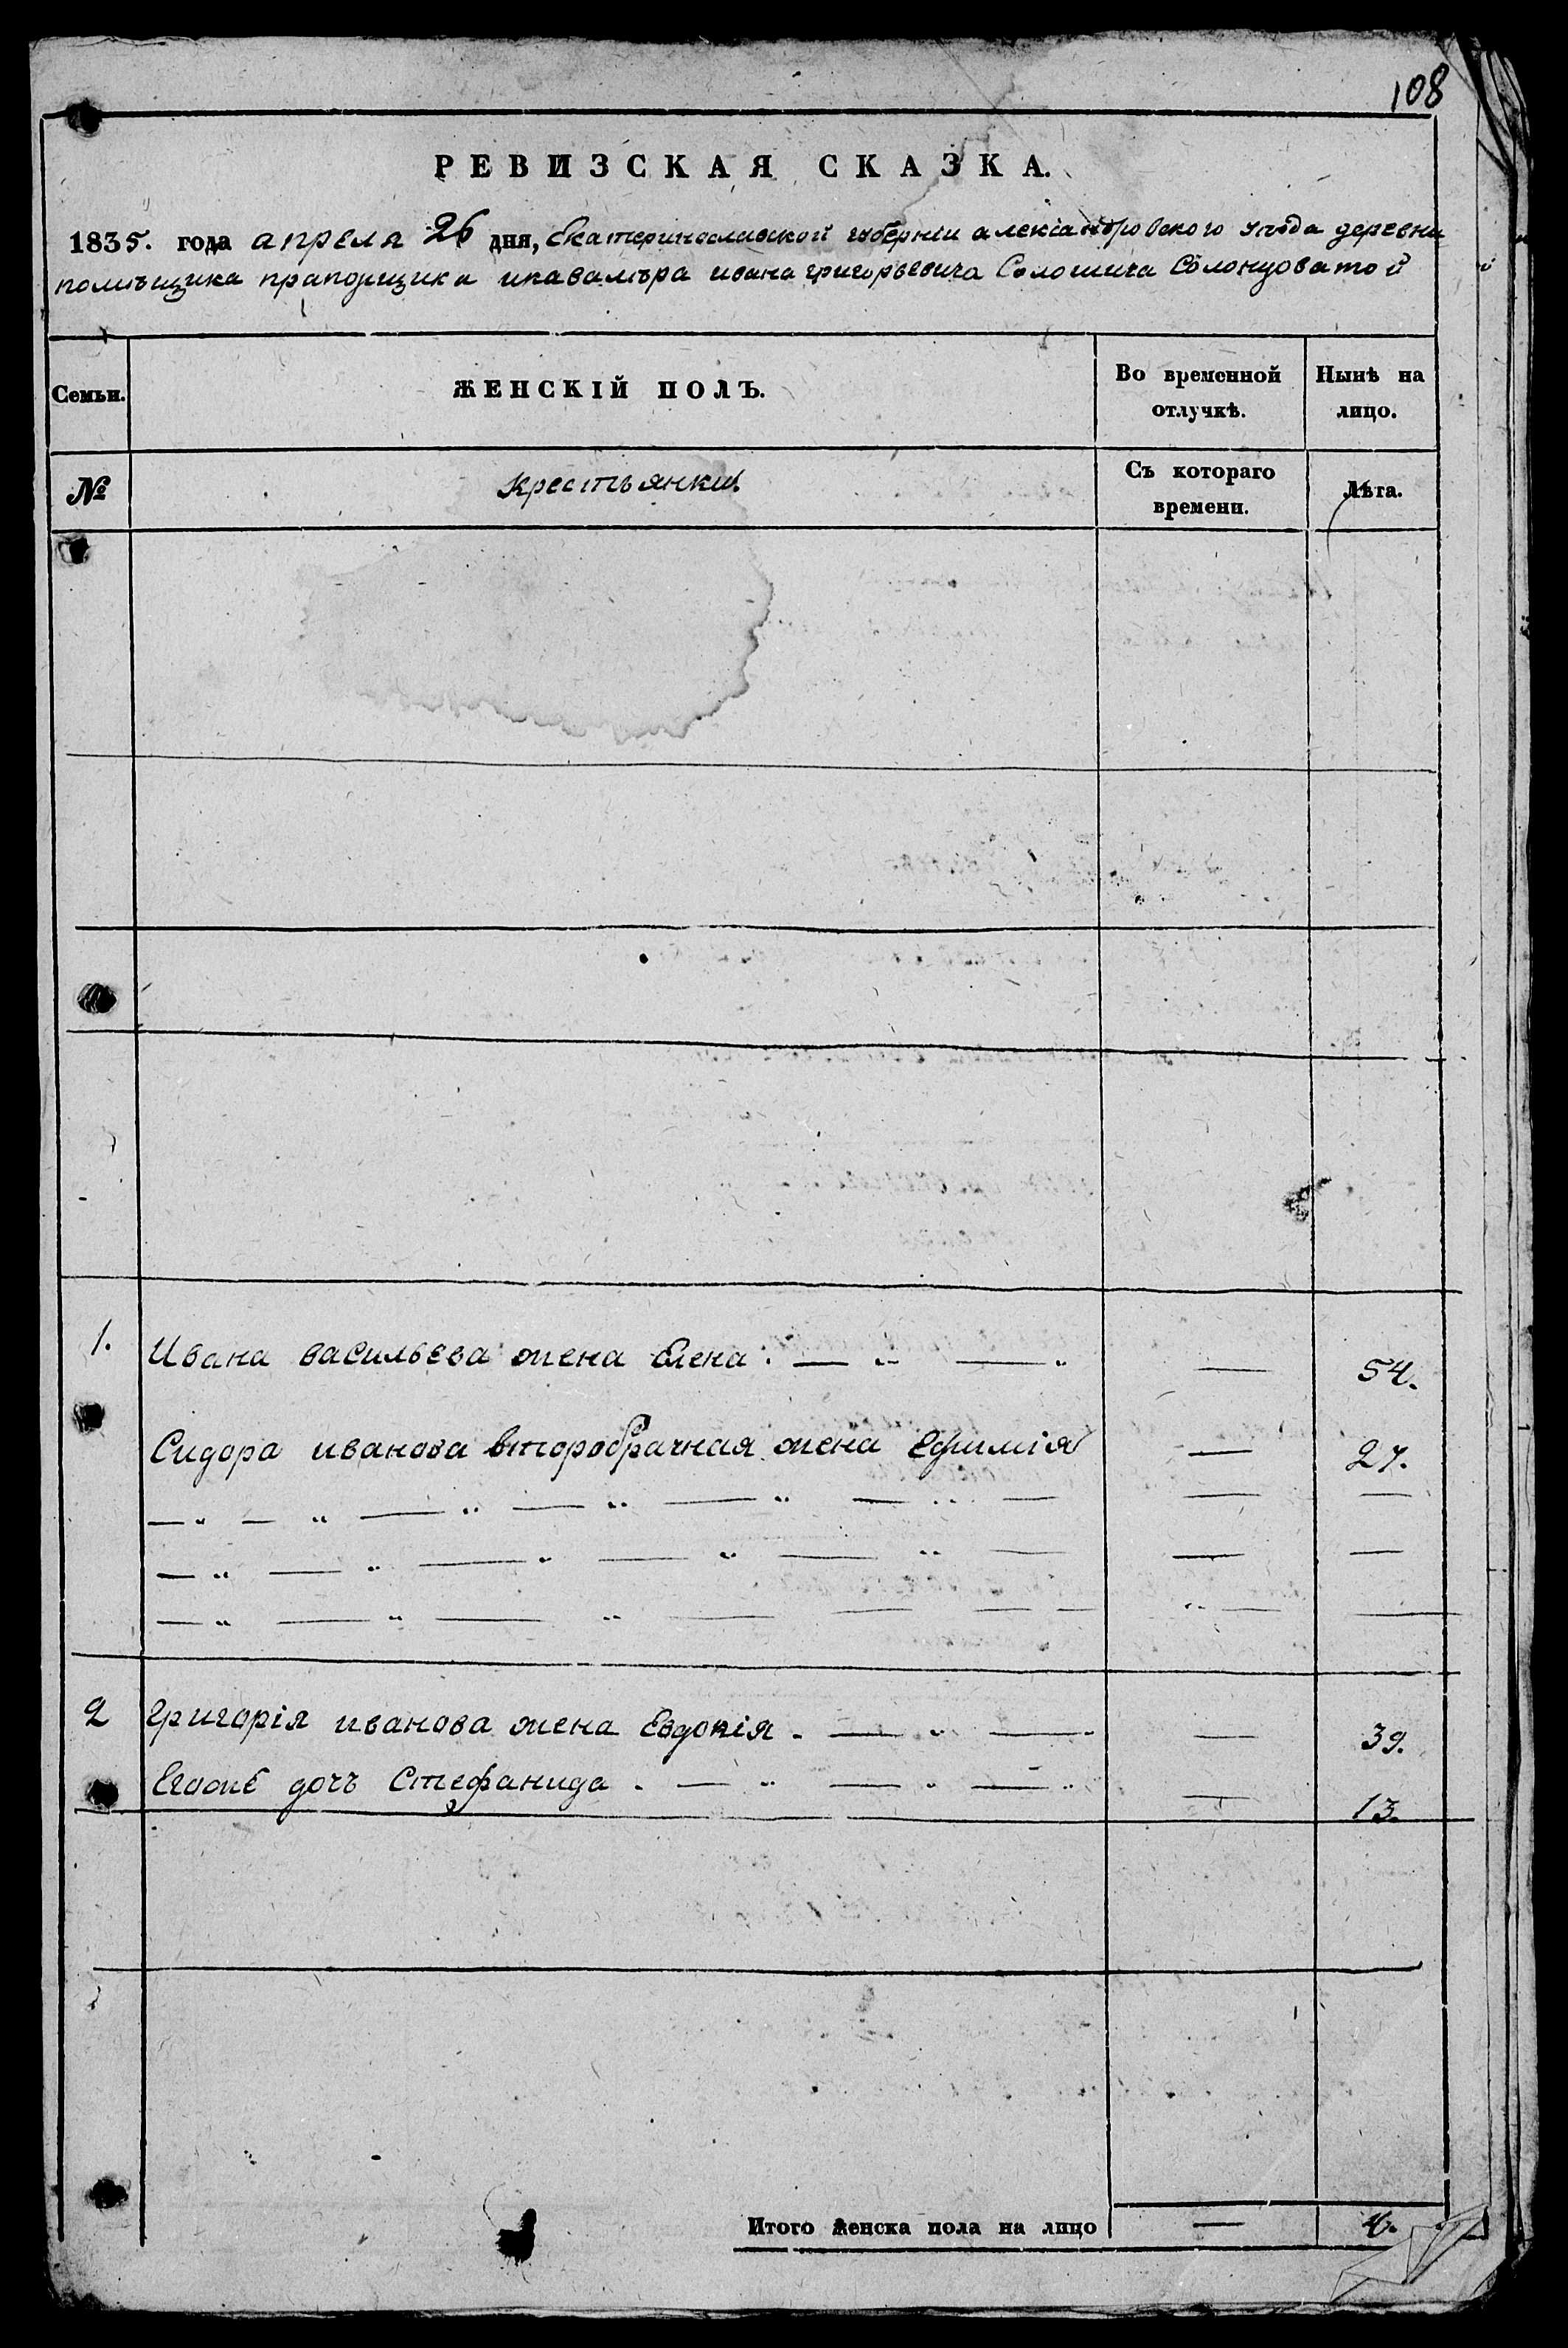 108
РЕВИЗСКАЯ СКАЗКА.
1835. года апреля 26 дня, Екатеринославской губернии алексiандровского уѣзда деревни
помѣщика прапорщика икавалѣра ивана григорьевича Солошича Солонцоватой
Семьи. ЖЕНСКІЙ ПОЛЪ. Во временной отлучкѣ. Нынѣ на лицо.
№ крестьянки. Съ котораго времени. Лѣта.
1. Ивана васильева жена Елена: — „ — „ — 54.
Сидора иванова второбрачная жена Ефимія — 27.
2 Григорія иванова жена Евдокія. — „ — — 39.
Егоже дочь Стефанида. — „ — „ — „ — 13.
Итого женска пола на лицо — 4.